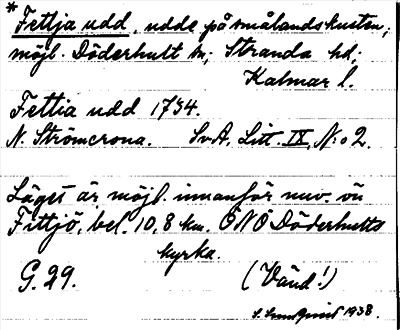 * Fettja udd, udde på smålandskusten,
möjl. Döderhult sn; Stranda hd;
Kalmar l.
Fettia udd 1734.
N. Strömcrona. SvA, Litt. IX, N:o 2.
Läget är möjl. innanför nuv. ön
Fittjö, bel. 10,8 km. ÖNÖ Döderhults
kyrka.
G. 29. (Vänd!)
S. Sundqvist 1938.